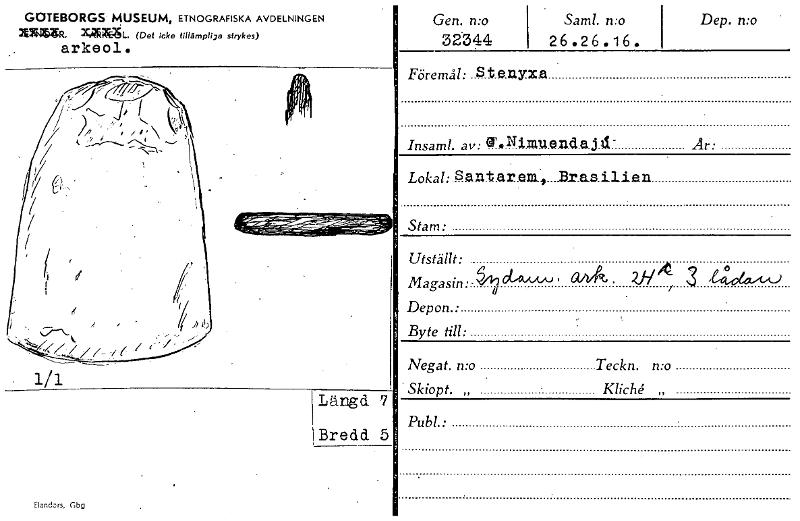 GÖTEBORGS MUSEUM, ETNOGRAFISKA AVDELNINGEN
(Det icke tillämpliga strykes)
arkeol.
1/1
Längd 7
Bredd 5
Elanders, Gbg
Gen. n:o Saml. n:o Dep. n:o
32344 26.26.16.
Föremål: Stenyxa
Insaml. av: C.Nimuendajú År:
Lokal: Santarem, Brasilien
Stam:
Utställt:
Magasin: Sydam. ark. 24 3 lådan
Depon.:
Byte till:
Negat. n:o Teckn. n:o
Skiopt. „ Kliché „
Publ.: